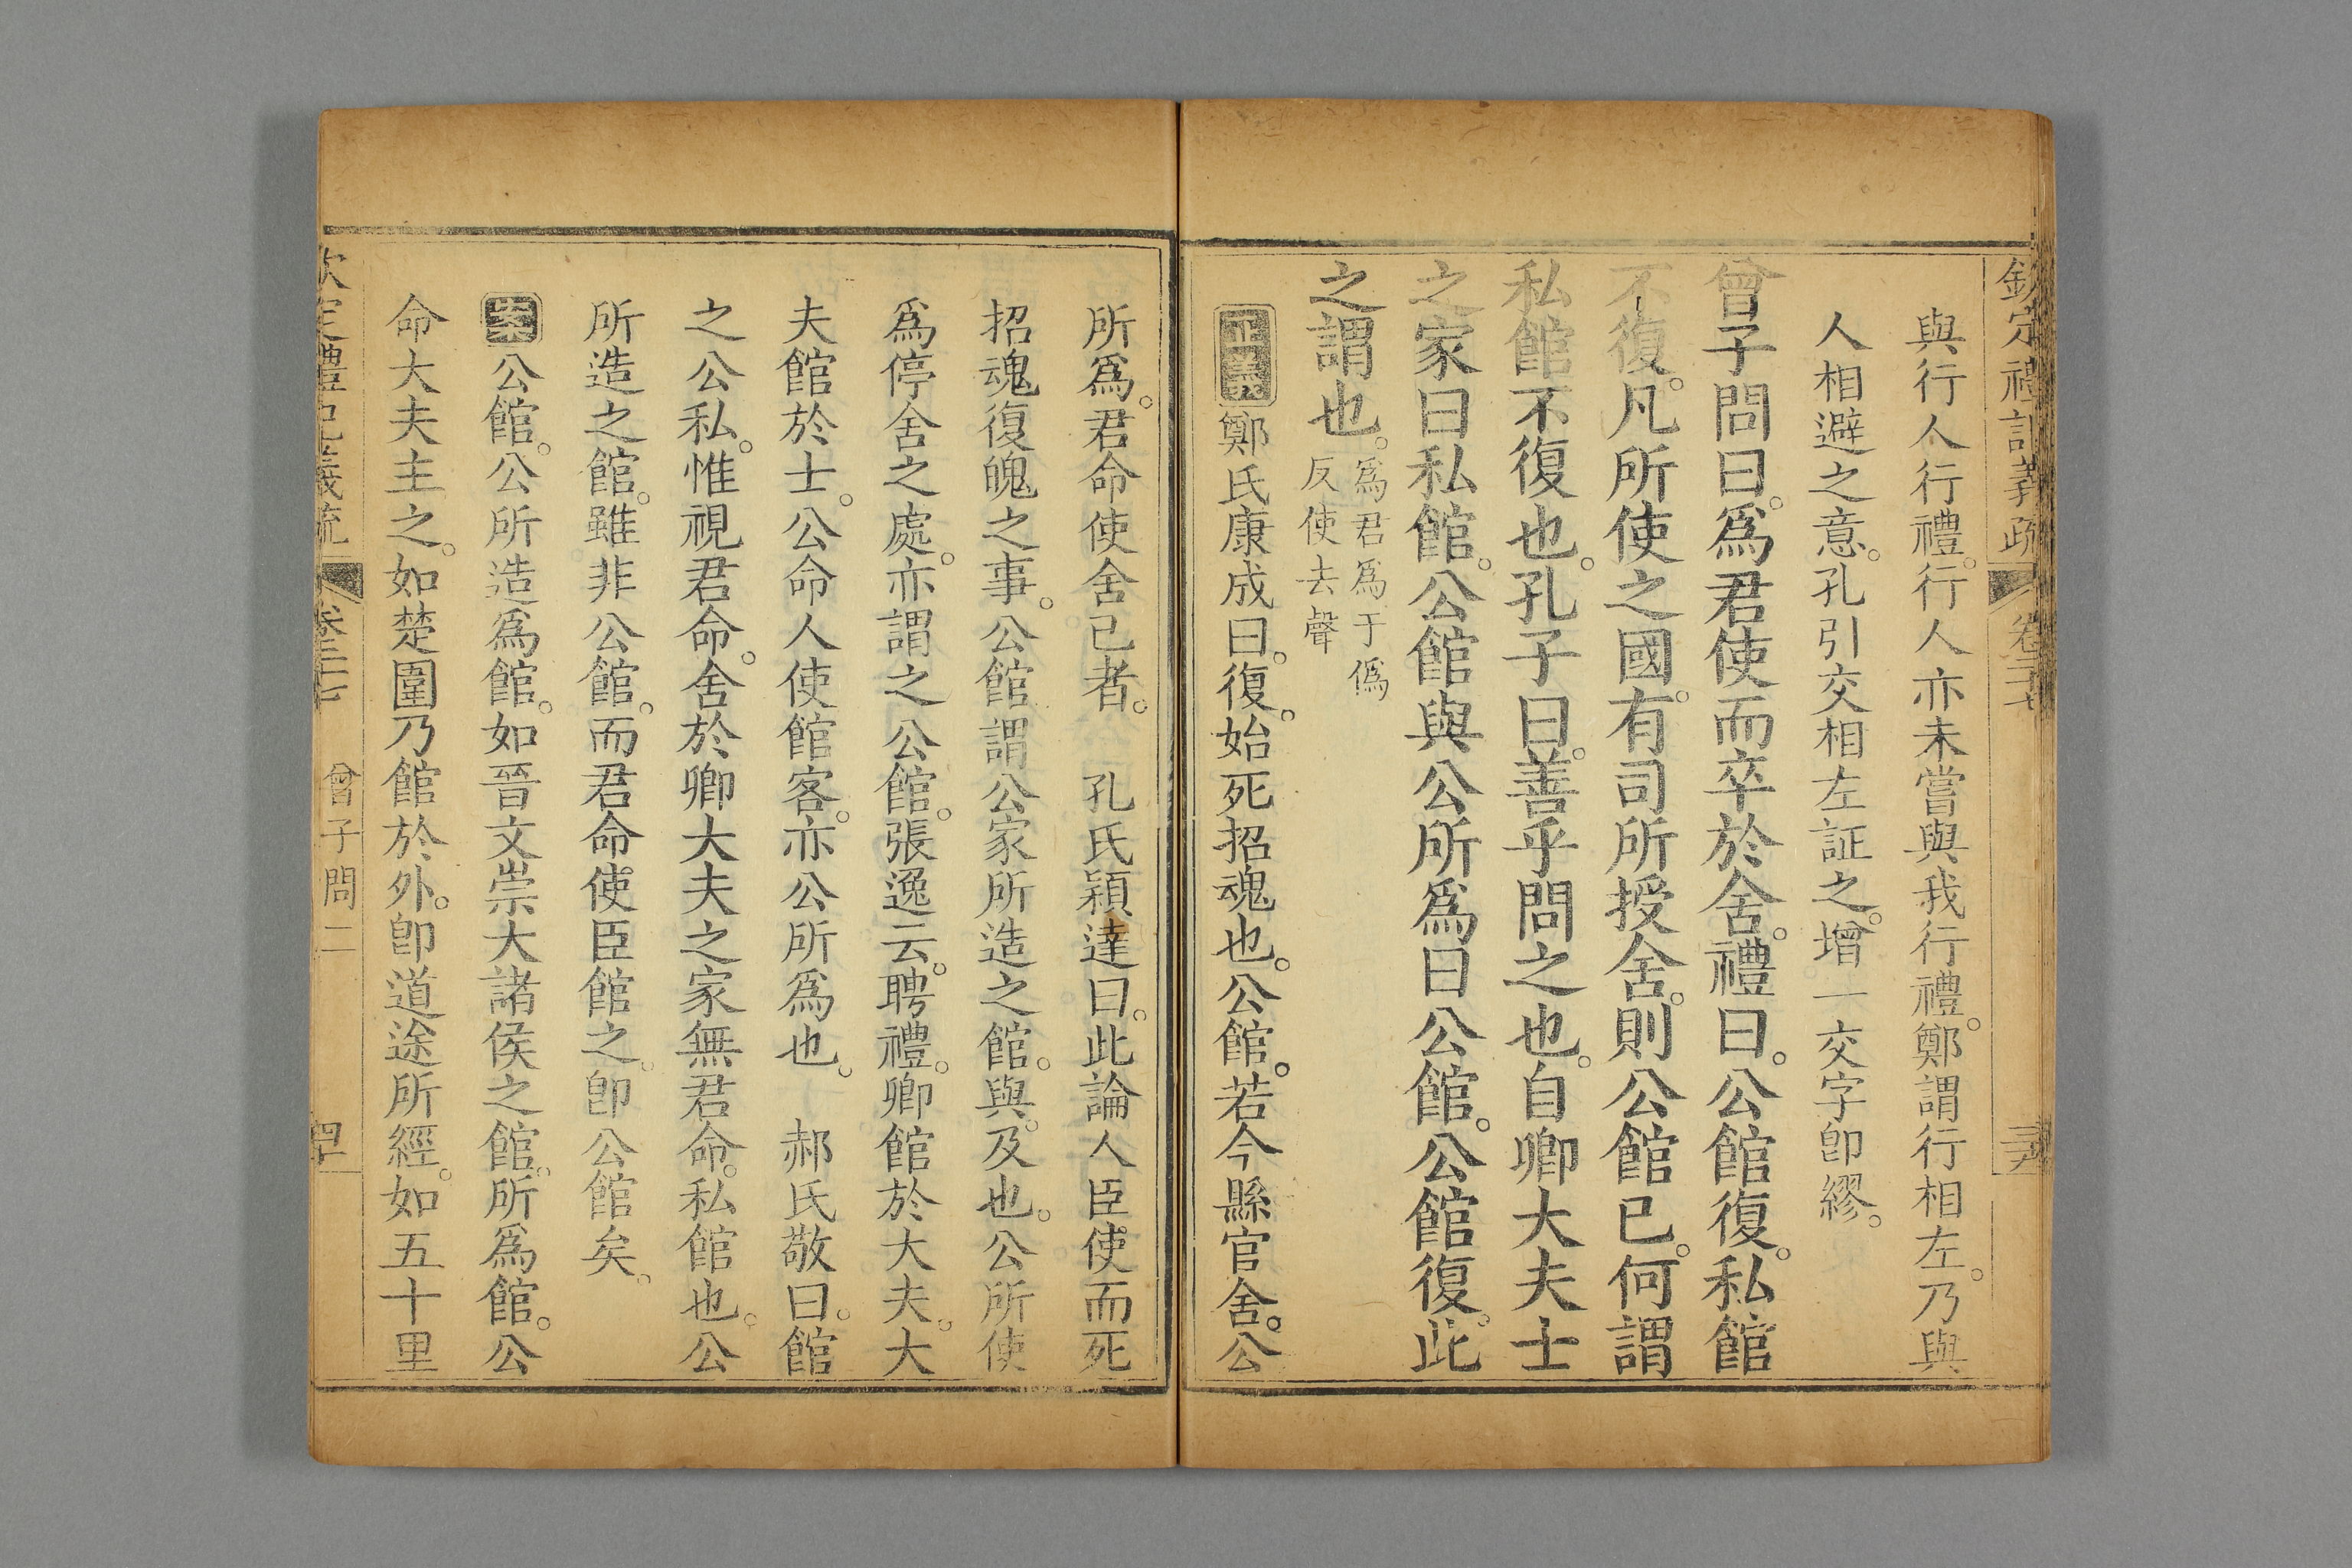 欽定禮記義疏 卷二十七 三九
與行人行禮。行人亦未嘗與我行禮。鄭謂行相左。乃與
人相避之意。孔引交相左証之。增一交字卽繆。
曾子問曰。爲君使而卒於舍。禮曰。公館復。私館
不復。凡所使之國。有司所授舍。則公館已。何謂
私館不復也。孔子曰。善乎問之也。自卿大夫士
之家曰私館。公館與公所爲曰公館。公館復。此
之謂也。爲君爲于僞
反使去聲
正義鄭氏康成曰。復。始死招魂也。公館。若今縣官舍。公
所爲。君命使舍己者。 孔氏穎達曰。此論人臣使而死
招魂復魄之事。公館謂公家所造之館。與。及也。公所使
爲停舍之處。亦謂之公館。張逸云。聘禮。卿館於大夫。大
夫館於士。公命人使館客。亦公所爲也。 郝氏敬曰。館
之公私。惟視君命。舍於卿大夫之家無君命。私館也。公
所造之館。雖非公館。而君命使臣館之。卽公館矣。
案公館。公所造爲館。如晉文崇大諸侯之館。所爲館。公
命大夫主之。如楚圍乃館於外。卽道途所經。如五十里
欽定禮記義疏 卷二十七 曾子問二 四十